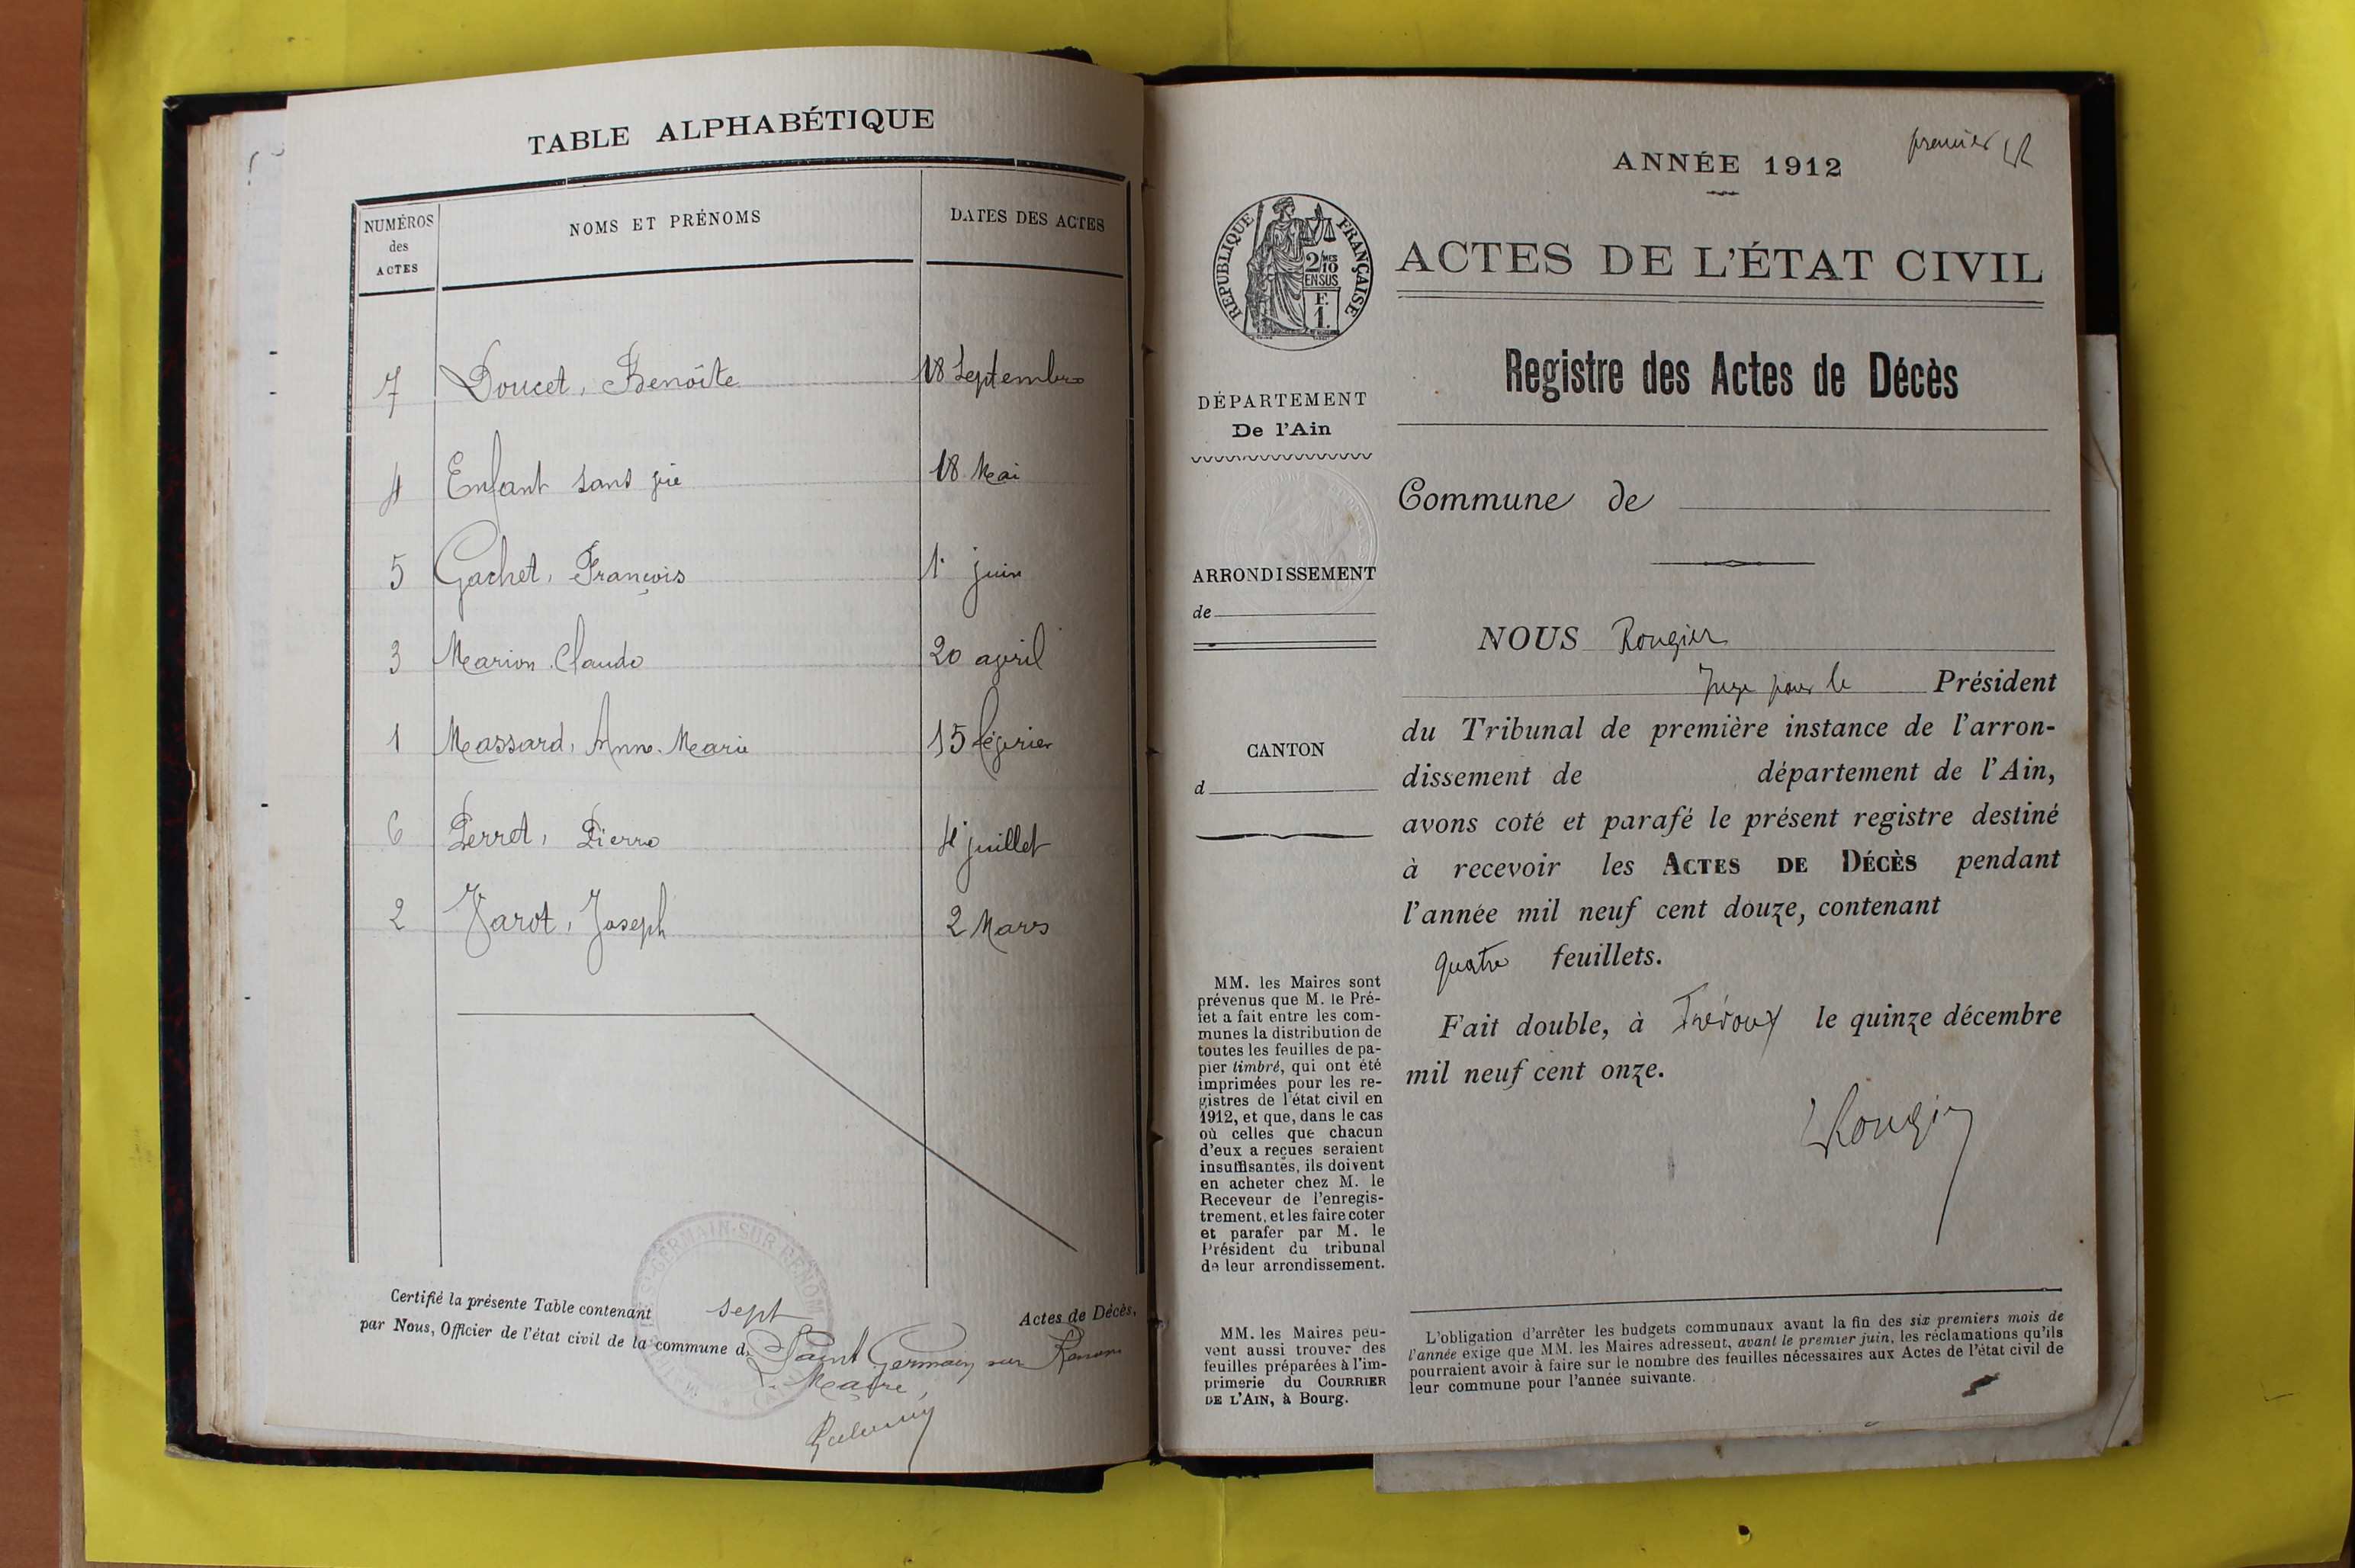 TABLE ALPHABÉTIQUE
NUMÉROS des ACTES
NOMS ET PRÉNOMS
DATES DES ACTES
7 Doucet, Benoîte 18 Septembre
4 Enfant sans vie 18 Mai
5 Gachet, François 1er juin
3 Marion Claude 20 avril
1 Massard, Anne-Marie 15 février
6 Perret, Pierre 4 juillet
2 Varot, Joseph 2 Mars
Certifié la présente Table contenant sept Actes de Décès,
par Nous, Officier de l'état civil de la commune de Saint Germain sur Renom
Le Maire,
ST GERMAIN-SUR RENOM
premier
ANNÉE 1912
RÉPUBLIQUE FRANÇAISE
2/10mes
EN SUS
F.
1.
ACTES DE L'ÉTAT CIVIL
Registre des Actes de Décès
DÉPARTEMENT
De l'Ain
Commune de
ARRONDISSEMENT
de
CANTON
d
NOUS Rougier
Juge pour le Président
du Tribunal de première instance de l'arron-
dissement de département de l'Ain,
avons coté et parafé le présent registre destiné
à recevoir les ACTES DE DÉCÈS pendant
l'année mil neuf cent douze, contenant
quatre feuillets.
Fait double, à Trévoux le quinze décembre
mil neuf cent onze.
Rougier
MM. les Maires sont
prévenus que M. le Pré-
fet a fait entre les com-
munes la distribution de
toutes les feuilles de pa-
pier timbré, qui ont été
imprimées pour les re-
gistres de l'état civil en
1912, et que, dans le cas
où celles que chacun
d'eux a reçues seraient
insuffisantes, ils doivent
en acheter chez M. le
Receveur de l'enregis-
trement, et les faire coter
et parafer par M. le
Président du tribunal
de leur arrondissement.
MM. les Maires peu-
vent aussi trouver des
feuilles préparées à l'im-
primerie du COURRIER
DE L'AIN, à Bourg.
L'obligation d'arrêter les budgets communaux avant la fin des six premiers mois de
l'année exige que MM. les Maires adressent, avant le premier juin, les réclamations qu'ils
pourraient avoir à faire sur le nombre des feuilles nécessaires aux Actes de l'état civil de
leur commune pour l'année suivante.